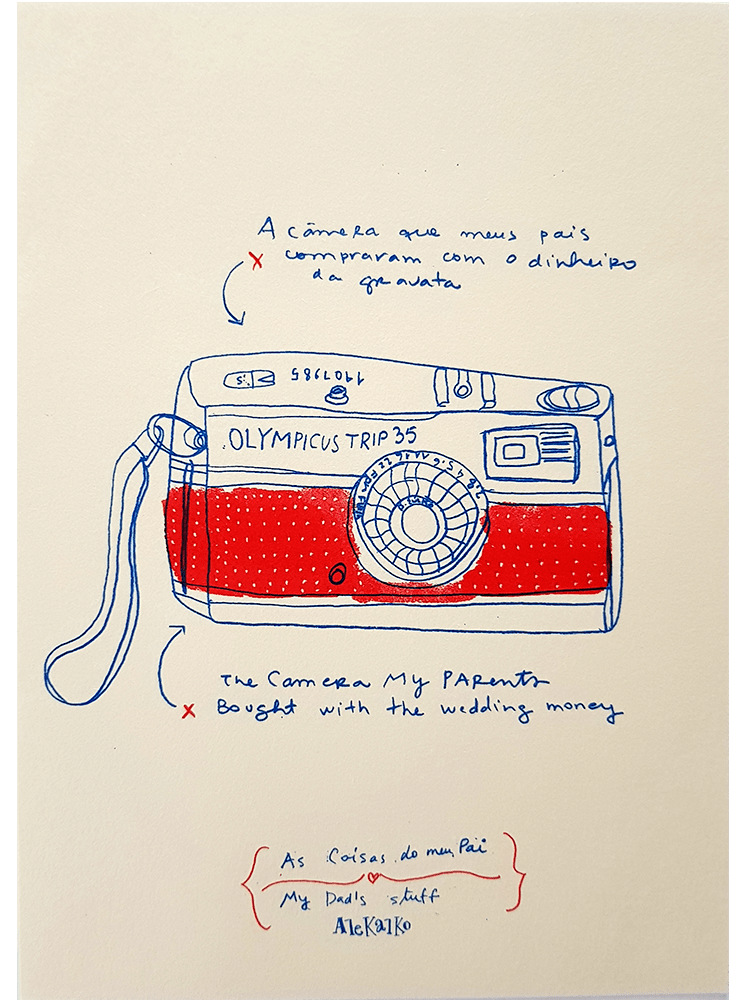 A câmera que meus pais
x compraram com o dinheiro
da gravata
OLYMPICUS TRIP 35
The Camera My PARents
x Bought with the wedding money
As Coisas do meu Pai
My Dad's stuff
AleKalKo